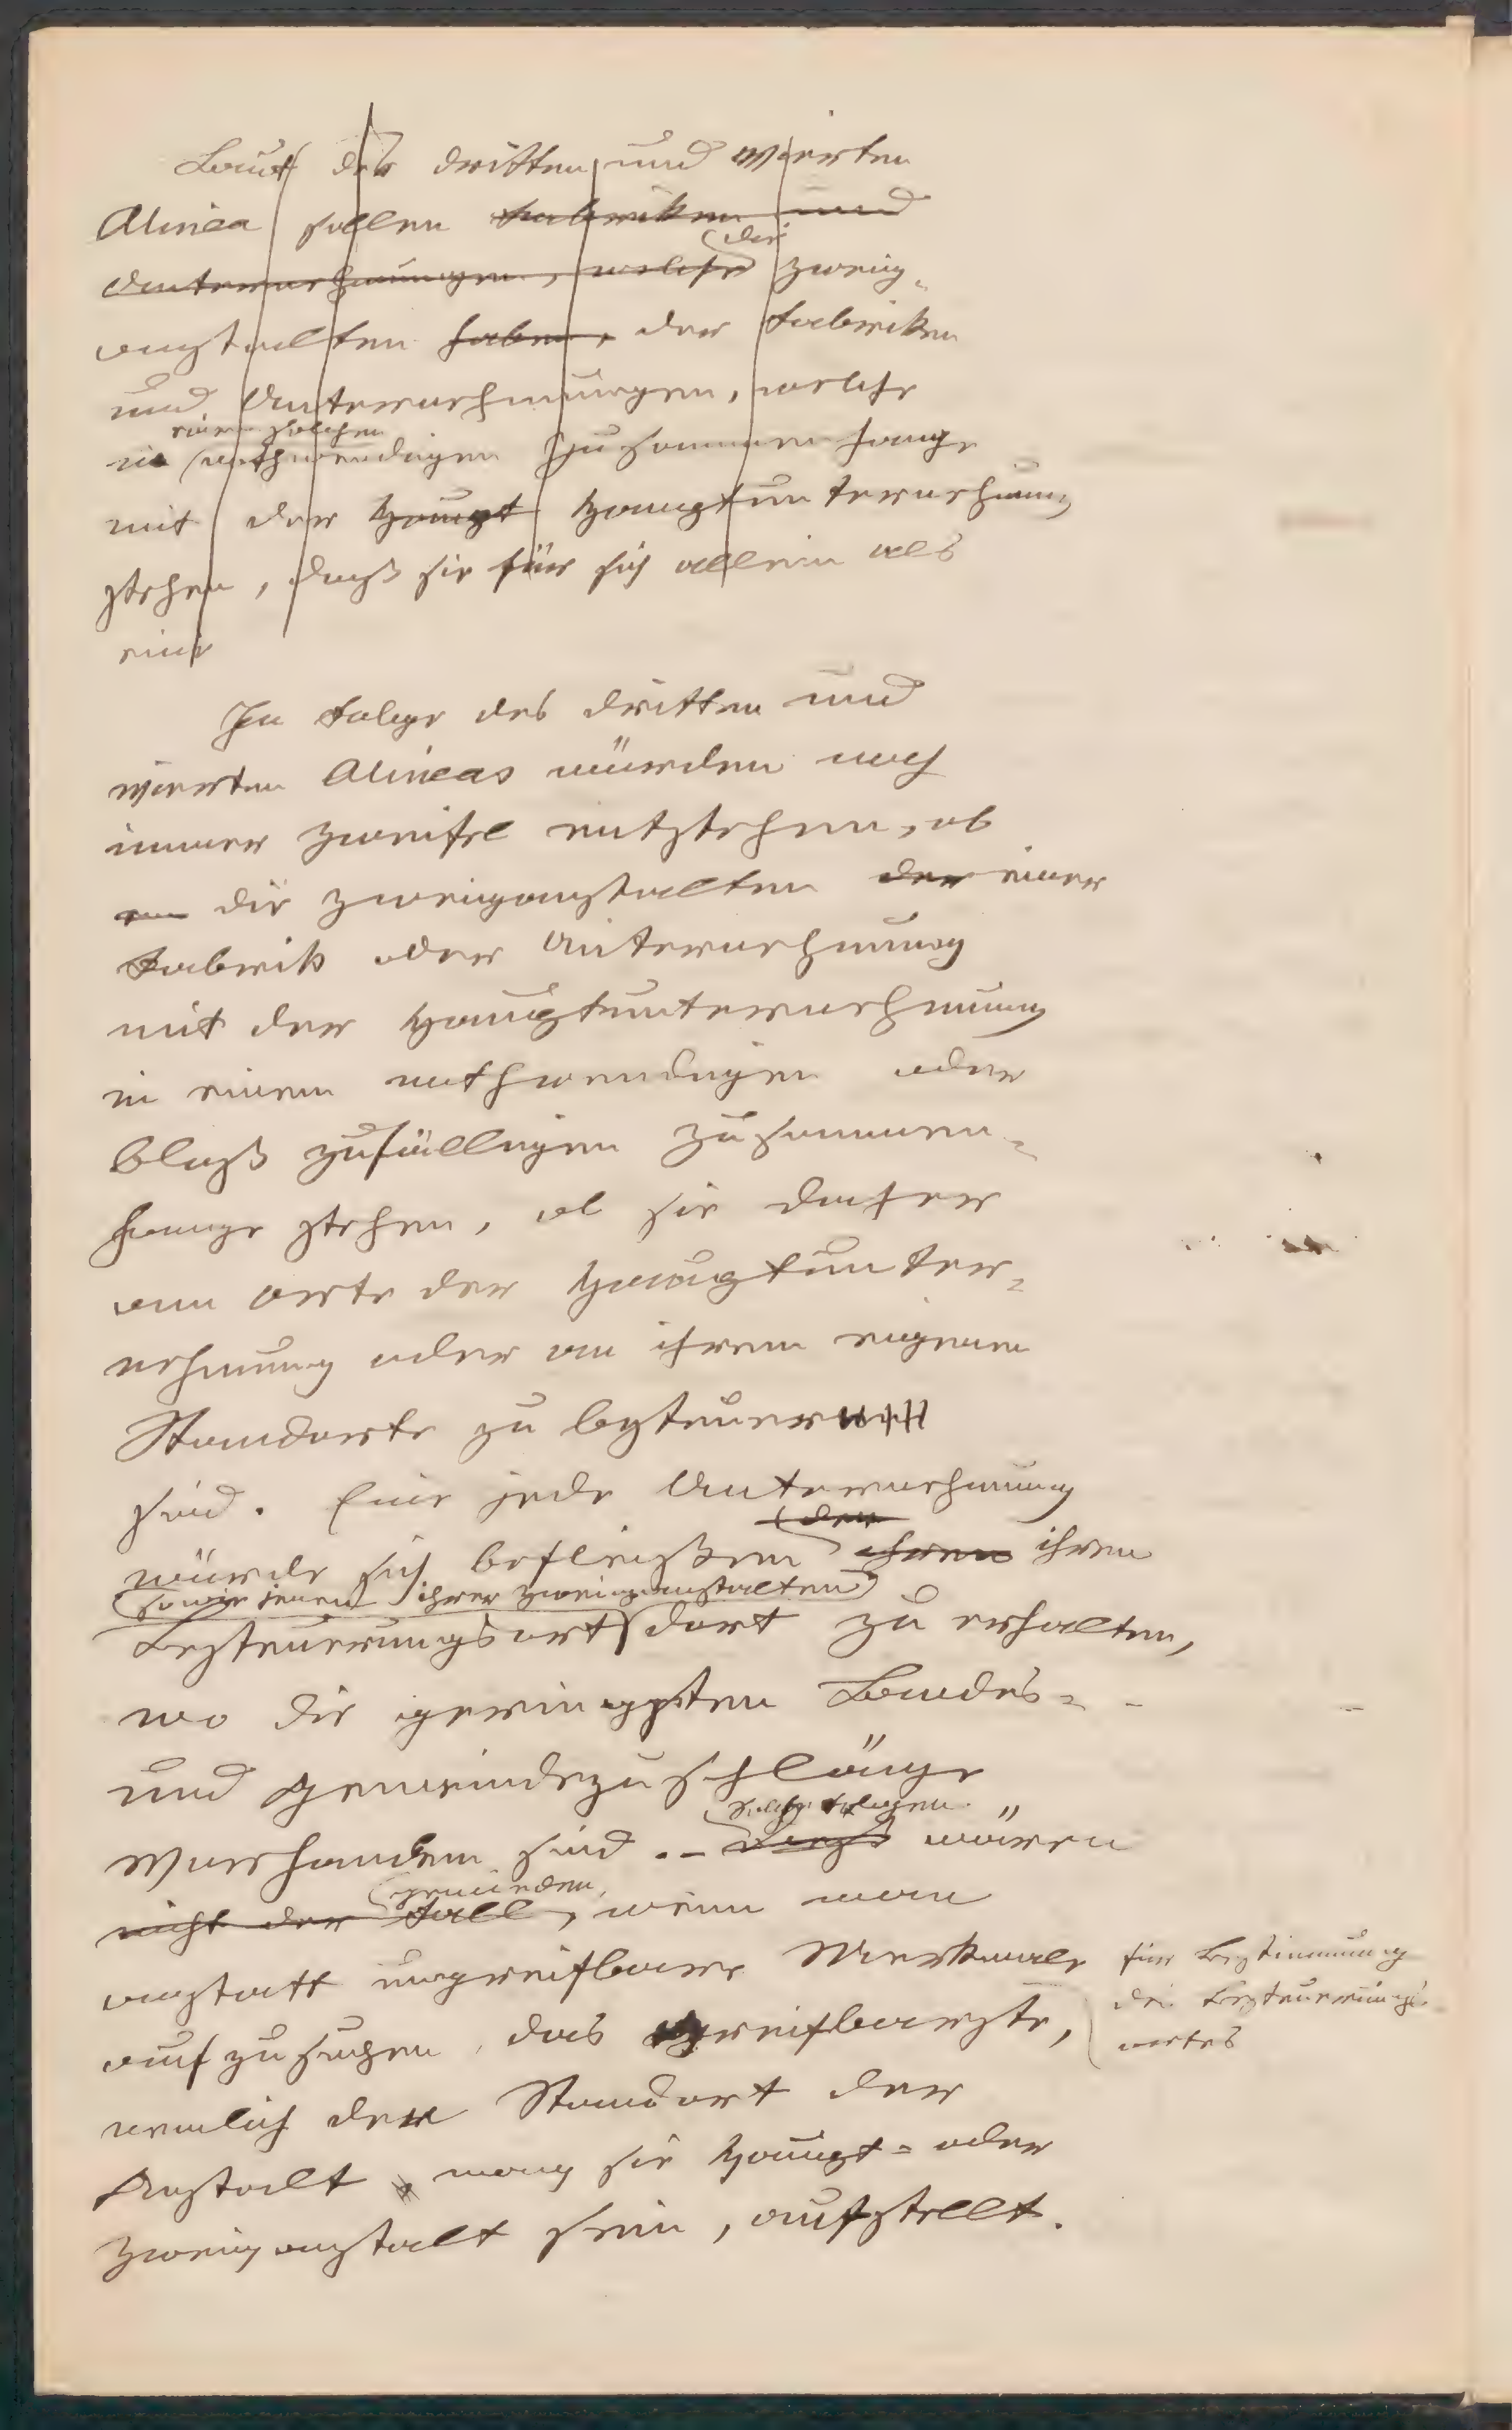 Laut des dritten und vierten
Alinea sollen Fabriken und
die
Unternehmungen, welche Zweig-
anstalten haben, der Fabriken
und Unternehmungen, welche
einem solchen
in nothwendigen Zusammenhange
mit der Haupt Hauptunternehmung
stehen, daß sie für sich allein als
eine
In Folge des dritten und
vierten Alineas würden noch
immer Zweifel entstehen, ob
die Zweiganstalten der einer
Fabrik oder Unternehmung
mit der Hauptunternehmung
in einem nothwendigen oder
bloß zufälligen Zusammen-
hange stehen, ob sie daher
am Orte der Hauptunter-
nehmung oder an ihrem eigenen
Standorte zu besteuern
sind. Eine jede Unternehmung
den
würde sich befleißen ihren ihren
sowie jenen ihrer Zweiganstalten
Besteuerungsort dort zu erhalten,
wo die geringsten Landes-
und Gemeindezuschläge
solche Folgen
vorhanden sind. – Dieß wären
vermieden,
nicht der Fall, wenn man
anstatt ungreifbare Merkmale
für Bestimmung
des Besteuerungs-
ortes
aufzusuchen, das greifbarste,
nemlich den Standort der
Anstalt, mag sie Haupt- oder
Zweiganstalt sein, aufstellt.